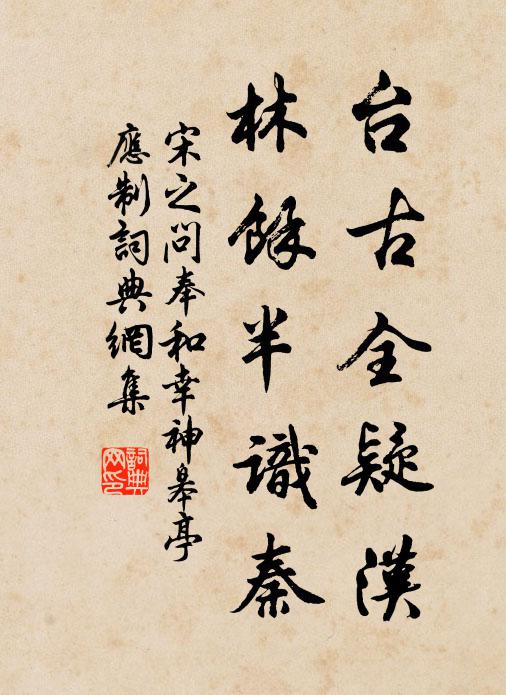 台古全疑漢
林餘半識秦
宋之問奉和幸神皋亭
應制詞典網集
詞典
网印